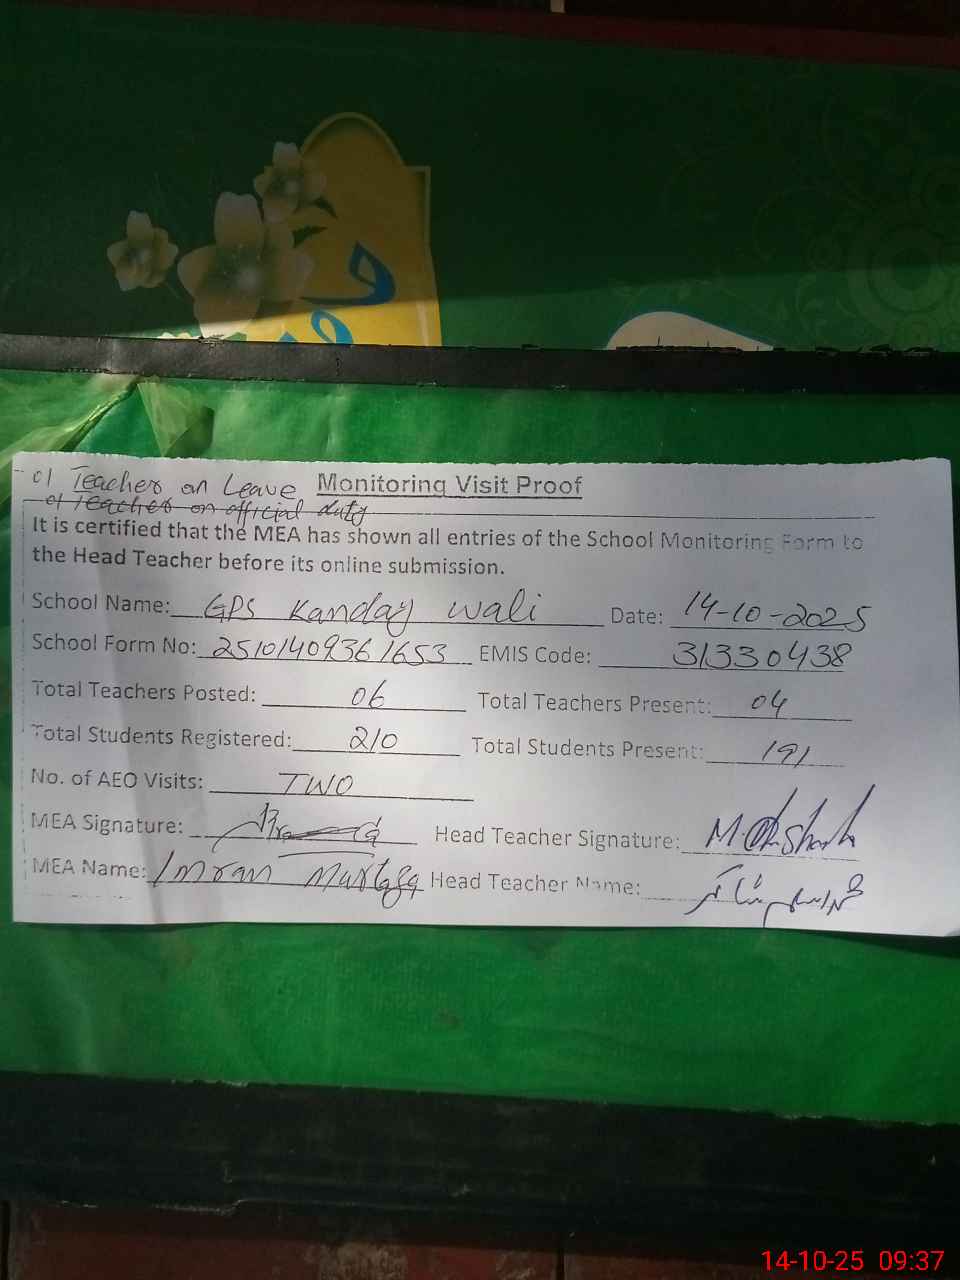 01 Teacher on Leave Monitoring Visit Proof
01 Teacher on official duty
It is certified that the MEA has shown all entries of the School Monitoring Form to
the Head Teacher before its online submission.
School Name: GPS Kanday Wali Date: 14-10-2025
School Form No: 25101409361653 EMIS Code: 31330438
Total Teachers Posted: 06 Total Teachers Present: 04
Total Students Registered: 210 Total Students Present: 191
No. of AEO Visits: TWO
MEA Signature: Head Teacher Signature:
MEA Name: Imran Murtaza Head Teacher Name:
14-10-25 09:37